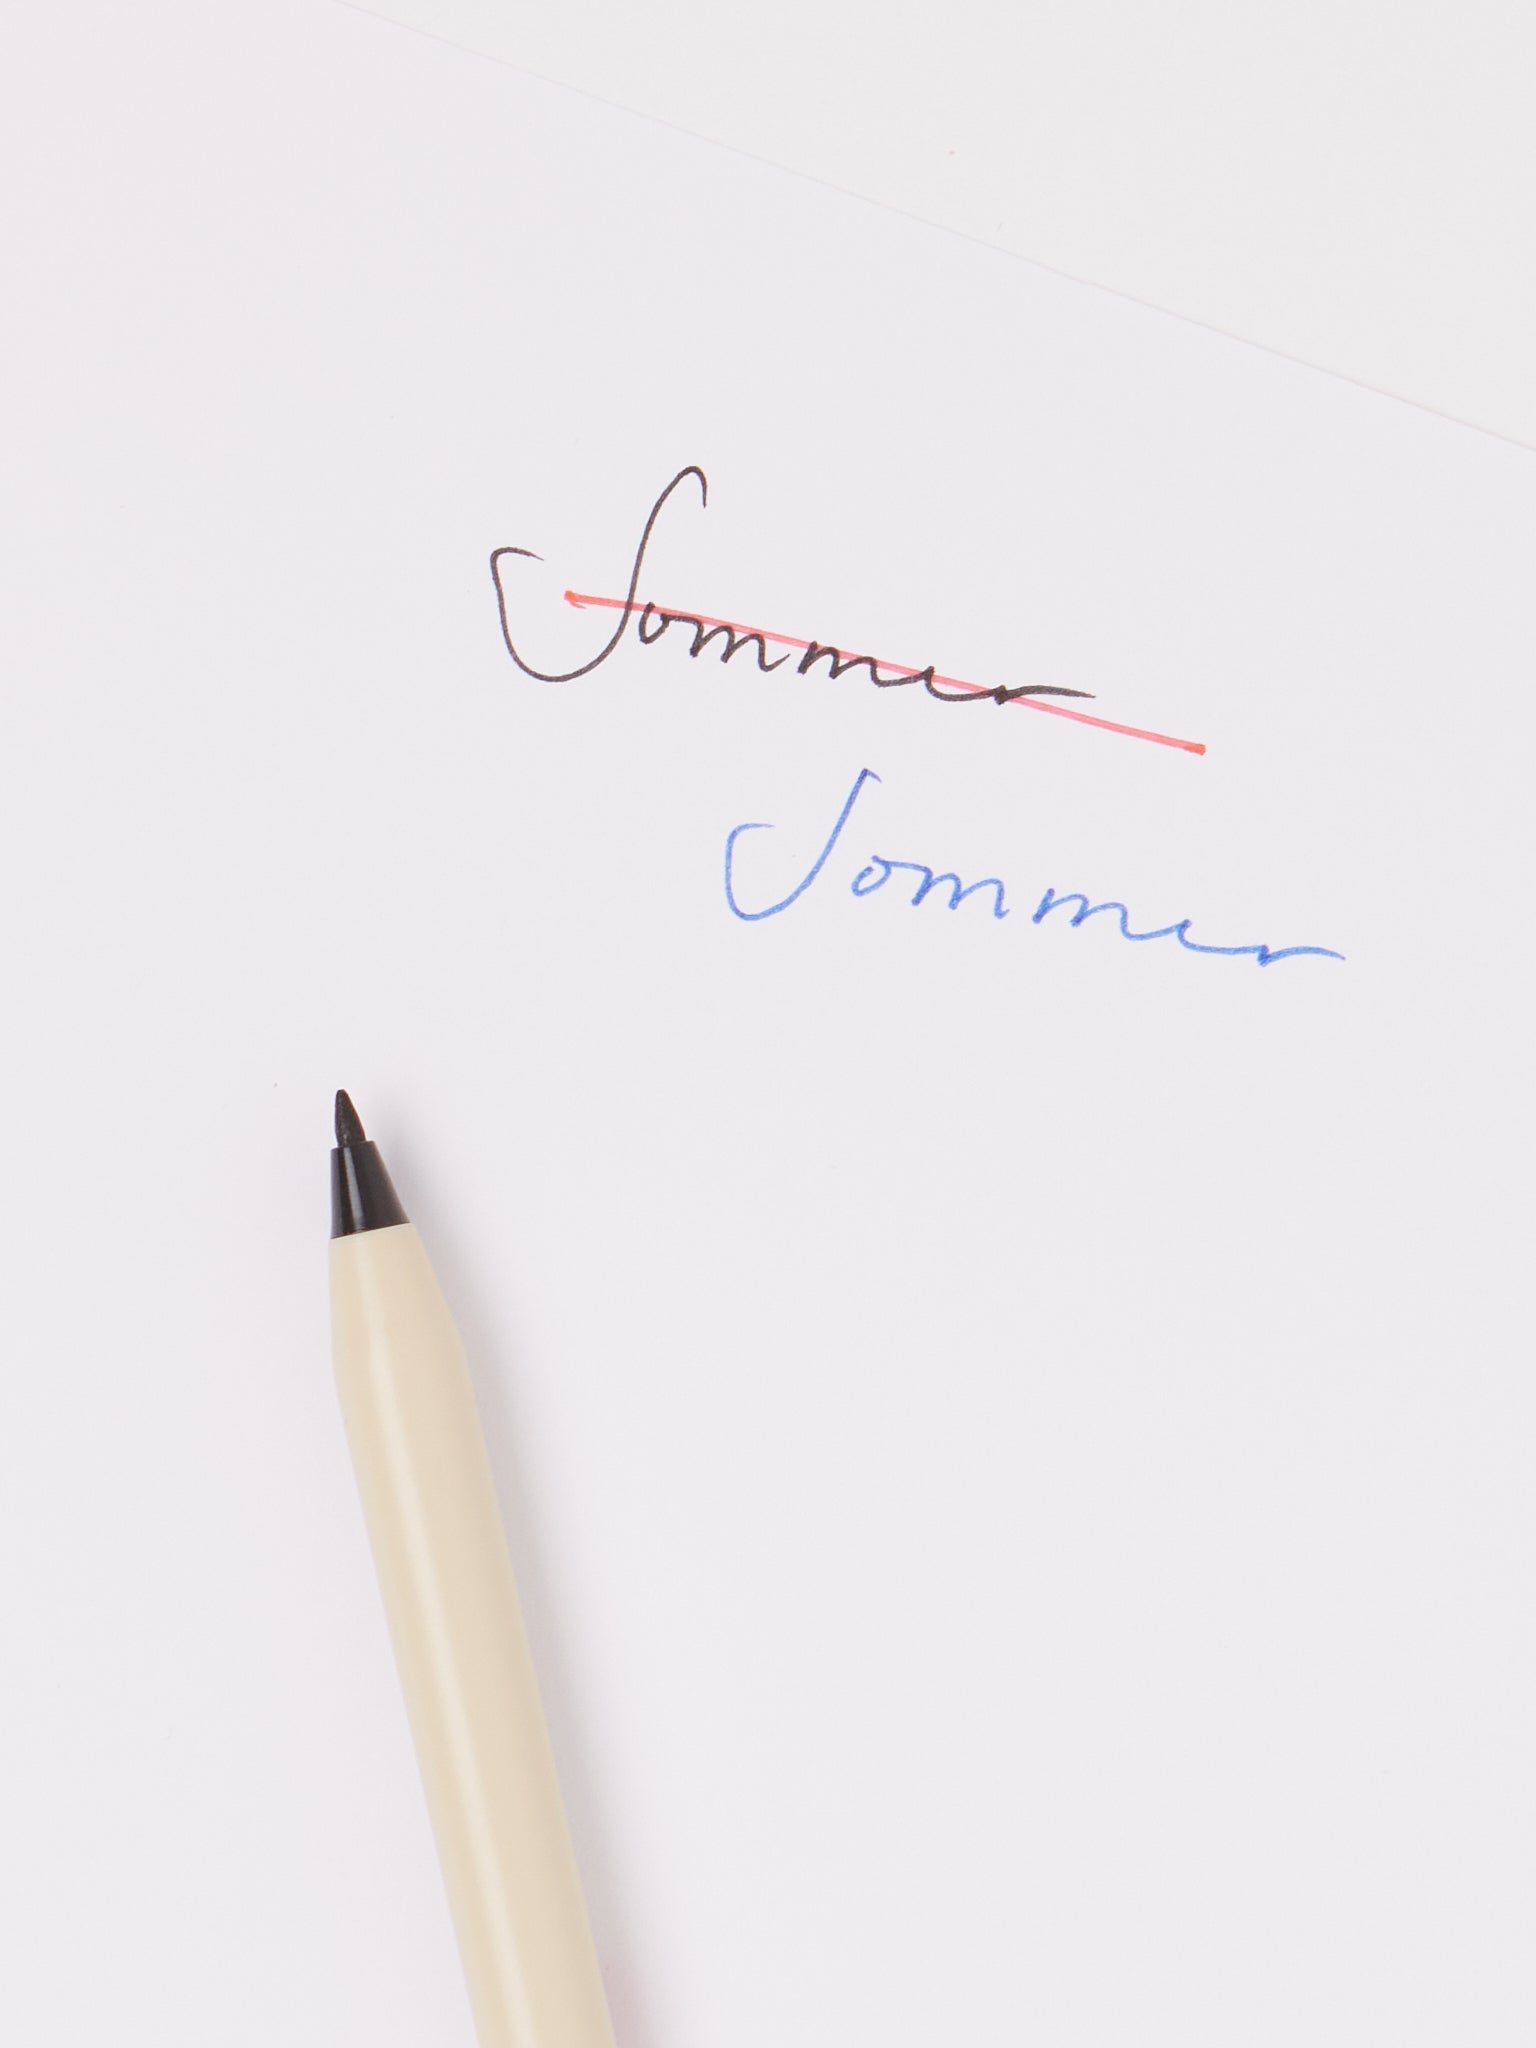 Sommer
Sommer